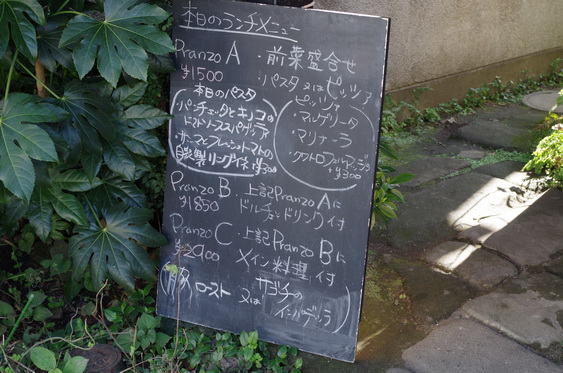 本日のランチメニュー
Pranzo A ・前菜盛合せ
¥1500 ・パスタ 又は ピッツァ
本日のパスタ
・パンチェッタとキノコの
トマトソーススパゲッティ
自家製リングイネ +¥300
ピッツァ
・マルゲリータ
・マリナーラ
・クワトロフォルマッジ
+¥300
Pranzo B ・上記Pranzo Aに
¥1850 ドルチェ、ドリンク付
Pranzo C ・上記Pranzo Bに
¥2900 メイン料理付
(豚 ロースト 又は サワラの
インパデッラ)